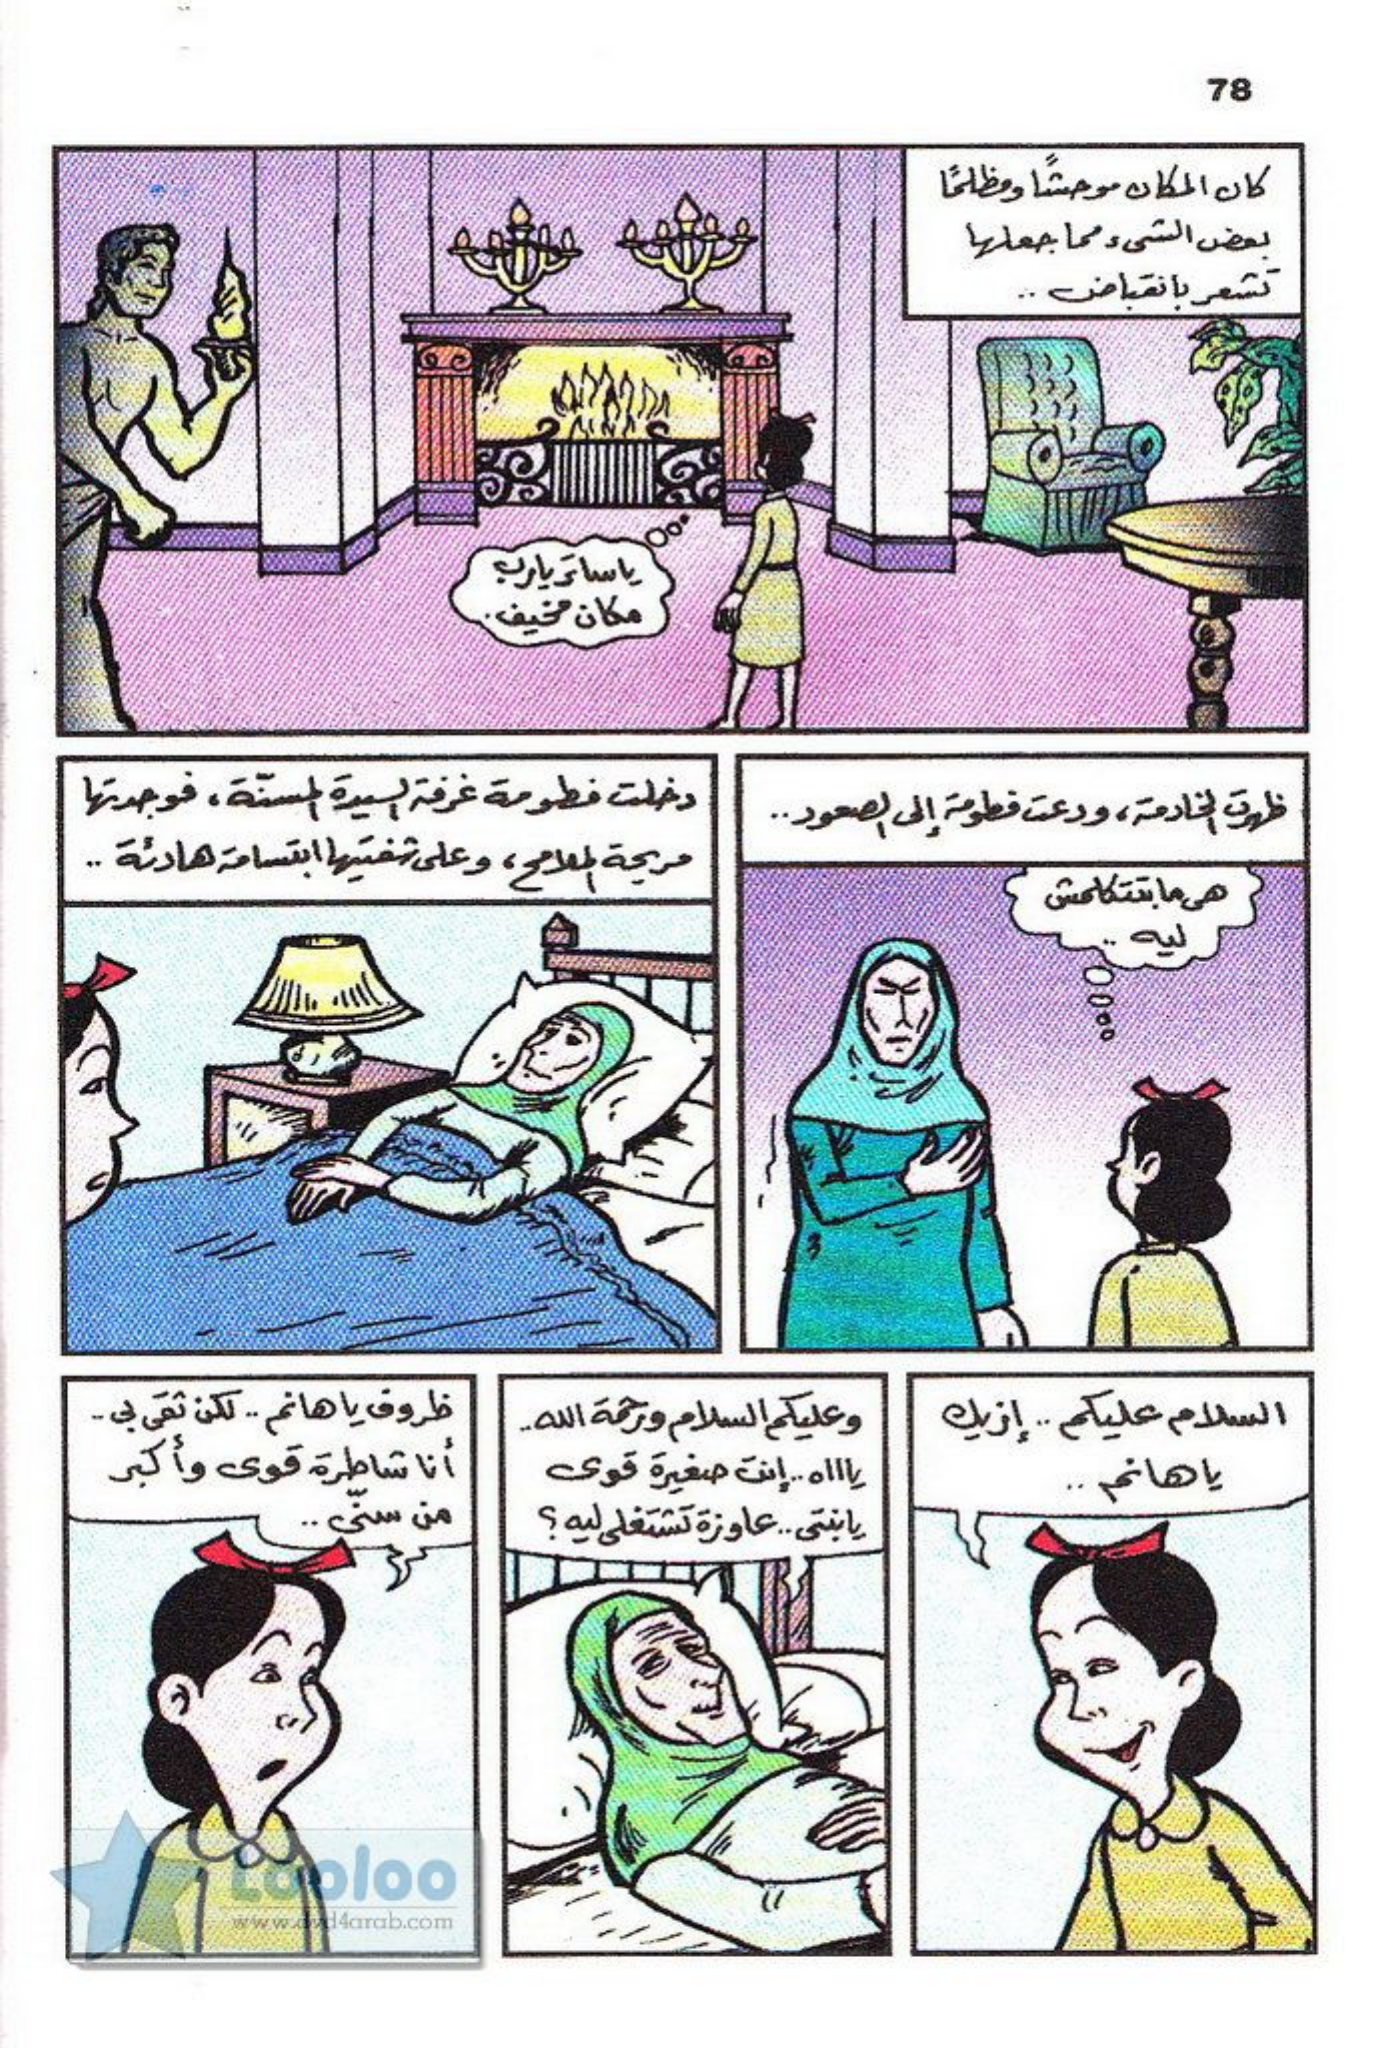 78
كان المكان موحشًا ومظلمًا
بعض الشىء مما جعلها
تشعر بانقباض ..
يا ساتر يا رب
مكان مخيف.
ظهرت الخادمة، ودعت فطومة إلى الصعود..
هى ما بتتكلمش
ليه ..
دخلت فطومة غرفة السيدة المسنّة، فوجدتها
مريحة الملامح، وعلى شفتيها ابتسامة هادئة ..
السلام عليكم .. إزيك
يا هانم ..
وعليكم السلام ورحمة الله..
ياااه.. إنت صغيرة قوى
يا بنتى.. عاوزة تشتغلى ليه؟
ظروف يا هانم .. لكن ثقى بى..
أنا شاطرة قوى وأكبر
من سنّى ..
Looloo
www.dvd4arab.com